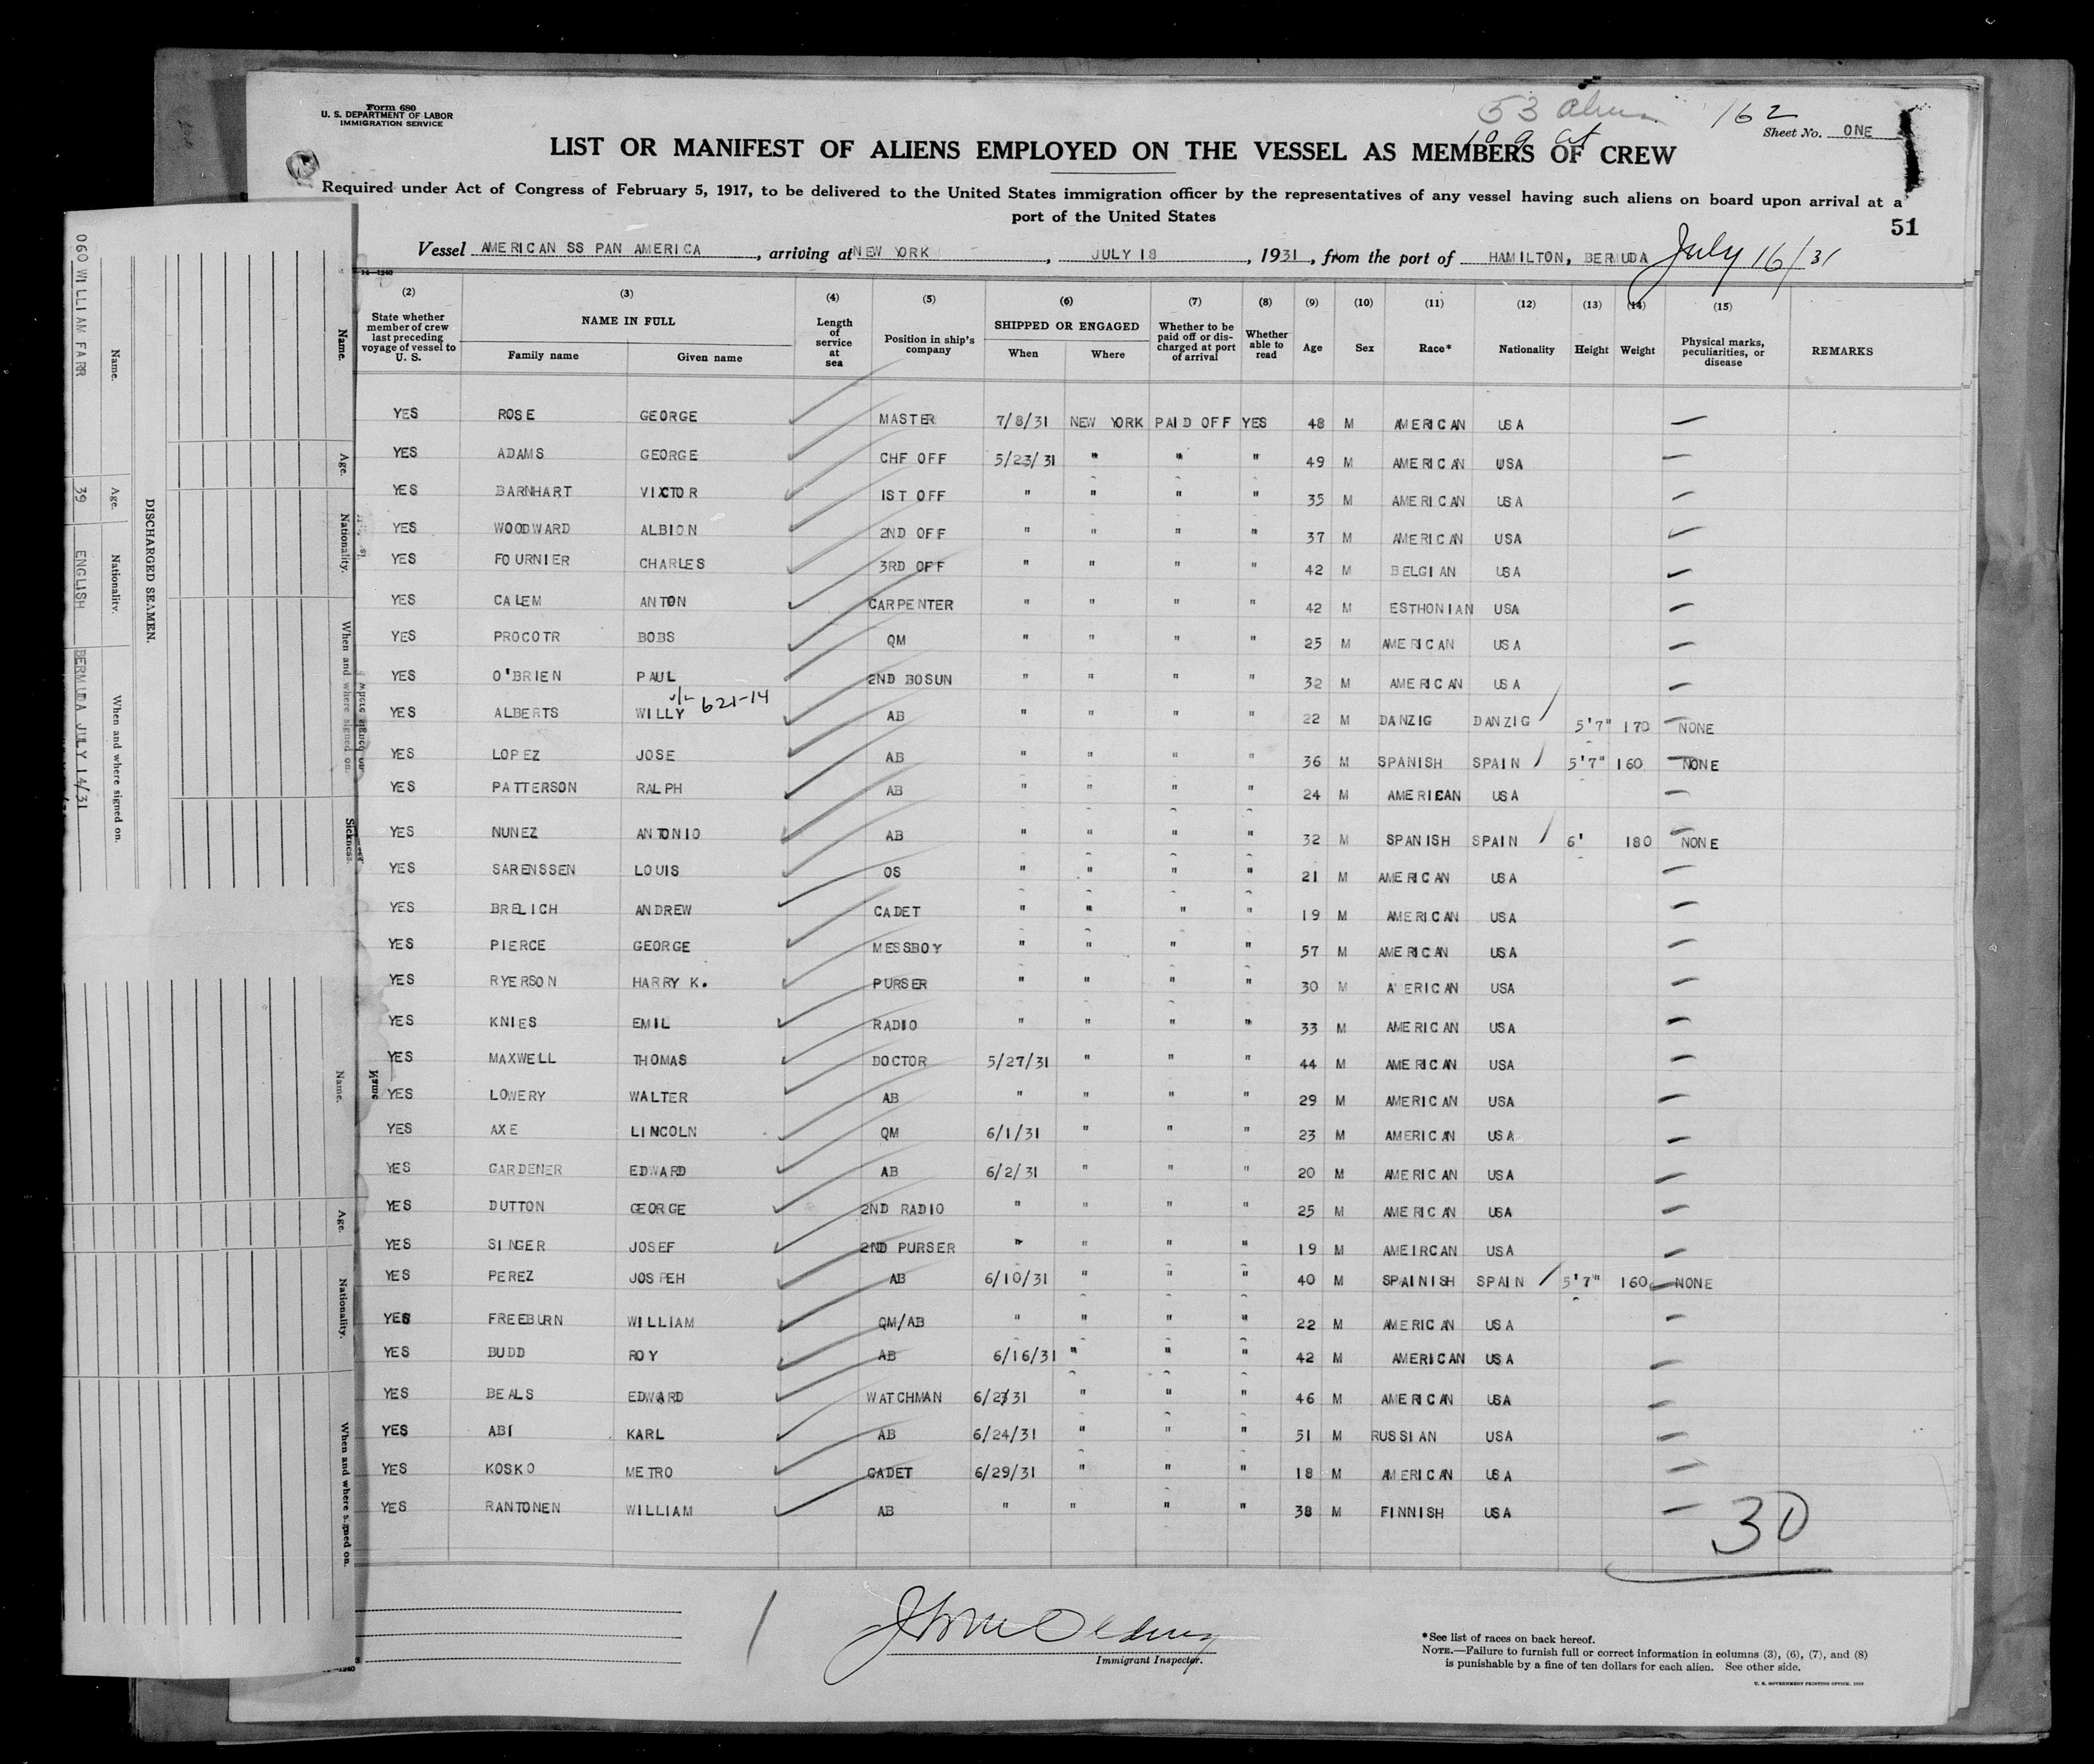 Form 680
U. S. DEPARTMENT OF LABOR
IMMIGRATION SERVICE
53 162
Sheet No. ONE
LIST OR MANIFEST OF ALIENS EMPLOYED ON THE VESSEL AS MEMBERS OF CREW
Required under Act of Congress of February 5, 1917, to be delivered to the United States immigration officer by the representatives of any vessel having such aliens on board upon arrival at a
port of the United States
51
Vessel AMERICAN SS PAN AMERICA, arriving at NEW YORK, JULY 18, 1931, from the port of HAMILTON, BERMUDA July 16/31
14—1240
(2) (3) (4) (5) (6) (7) (8) (9) (10) (11) (12) (13) (14) (15)
State whether member of crew last preceding voyage of vessel to U. S. NAME IN FULL Family name Given name Length of service at sea Position in ship's company SHIPPED OR ENGAGED When Where Whether to be paid off or discharged at port of arrival Whether able to read Age Sex Race* Nationality Height Weight Physical marks, peculiarities, or disease REMARKS
YES ROSE GEORGE MASTER 7/8/31 NEW YORK PAID OFF YES 48 M AMERICAN USA —
YES ADAMS GEORGE CHF OFF 5/23/31 " " " 49 M AMERICAN USA —
YES BARNHART VIXTOR 1ST OFF " " " " 35 M AMERICAN USA —
YES WOODWARD ALBION 2ND OFF " " " " 37 M AMERICAN USA —
YES FOURNIER CHARLES 3RD OFF " " " " 42 M BELGIAN USA —
YES CALEM ANTON CARPENTER " " " " 42 M ESTHONIAN USA —
YES PROCOTR BOBS QM " " " " 25 M AMERICAN USA —
YES O'BRIEN PAUL 2ND BOSUN " " " " 32 M AMERICAN USA —
621-14
YES ALBERTS WILLY AB " " " " 22 M DANZIG DANZIG / 5'7" 170 NONE
YES LOPEZ JOSE AB " " " " 36 M SPANISH SPAIN / 5'7" 160 NONE
YES PATTERSON RALPH AB " " " " 24 M AMERICAN USA —
YES NUNEZ ANTONIO AB " " " " 32 M SPANISH SPAIN / 6' 180 NONE
YES SARENSSEN LOUIS OS " " " " 21 M AMERICAN USA —
YES BRELICH ANDREW CADET " " " " 19 M AMERICAN USA —
YES PIERCE GEORGE MESSBOY " " " " 57 M AMERICAN USA —
YES RYERSON HARRY K. PURSER " " " " 30 M A ERICAN USA —
YES KNIES EMIL RADIO " " " " 33 M AMERICAN USA —
YES MAXWELL THOMAS DOCTOR 5/27/31 " " " 44 M AMERICAN USA —
YES LOWERY WALTER AB " " " " 29 M AMERICAN USA —
YES AXE LINCOLN QM 6/1/31 " " " 23 M AMERICAN USA —
YES GARDENER EDWARD AB 6/2/31 " " " 20 M AMERICAN USA —
YES DUTTON GEORGE 2ND RADIO " " " " 25 M AMERICAN USA —
YES SINGER JOSEF 2ND PURSER " " " " 19 M AMEIRCAN USA —
YES PEREZ JOSPEH AB 6/10/31 " " " 40 M SPAINISH SPAIN / 5'7" 160 NONE
YES FREEBURN WILLIAM QM/AB " " " " 22 M AMERICAN USA —
YES BUDD ROY AB 6/16/31 " " " 42 M AMERICAN USA —
YES BEALS EDWARD WATCHMAN 6/23/31 " " " 46 M AMERICAN USA —
YES ABI KARL AB 6/24/31 " " " 51 M RUSSIAN USA —
YES KOSKO METRO CADET 6/29/31 " " " 18 M AMERICAN USA —
YES RANTONEN WILLIAM AB " " " " 38 M FINNISH USA —
30
Immigrant Inspector.
*See list of races on back hereof.
NOTE.—Failure to furnish full or correct information in columns (3), (6), (7), and (8)
is punishable by a fine of ten dollars for each alien. See other side.
U. S. GOVERNMENT PRINTING OFFICE
DISCHARGED SEAMEN.
Name. Age. Nationality. When and where signed on.
060 WILLIAM FARR 39 ENGLISH BERMUDA JULY 14/31
Name. Age. Nationality. When and where signed on. Sickness.
Name. Age. Nationality. When and where signed on.
Name